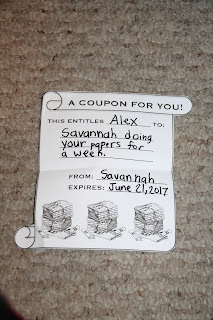 A COUPON FOR YOU!
THIS ENTITLES Alex TO:
Savannah doing
your papers for
a week.
FROM: Savannah
EXPIRES: June 21, 2017